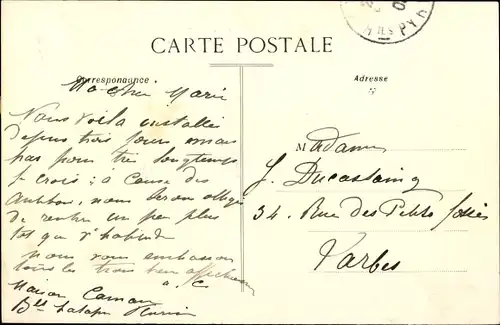 CARTE POSTALE
Correspondance
Adresse
Ma chère Marie
Nous voilà installés
depuis trois jours mais
pas pour très longtemps
je crois ; à cause des
nous serons obligés
de rentrer un peu plus
tôt que d'habitude
nous vous embrassons
tous les trois bien affectueusement
Maison
Madame
J. Ducastaing
34. Rue des Petits fossés
Tarbes